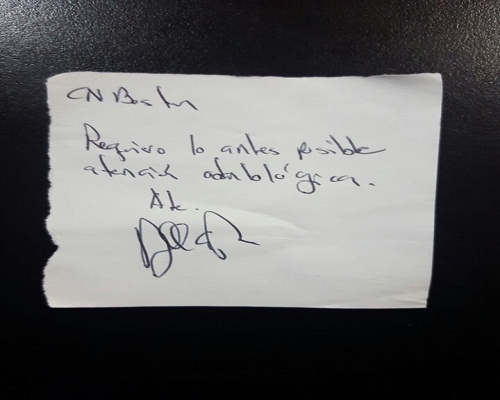 Requiero lo antes posible
atención odontológica.
Atte.